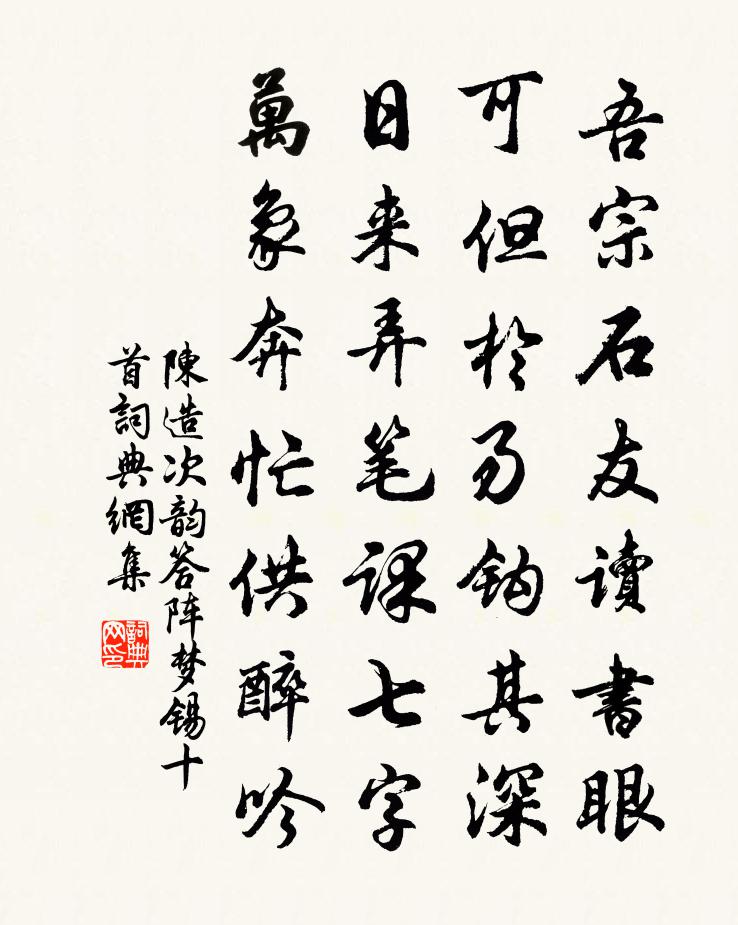 吾宗石友讀書眼
可但於易鈎其深
日来弄笔課七字
萬象奔忙供醉吟
陳造次韵答阵梦锡十
首詞典網集
詞典网印